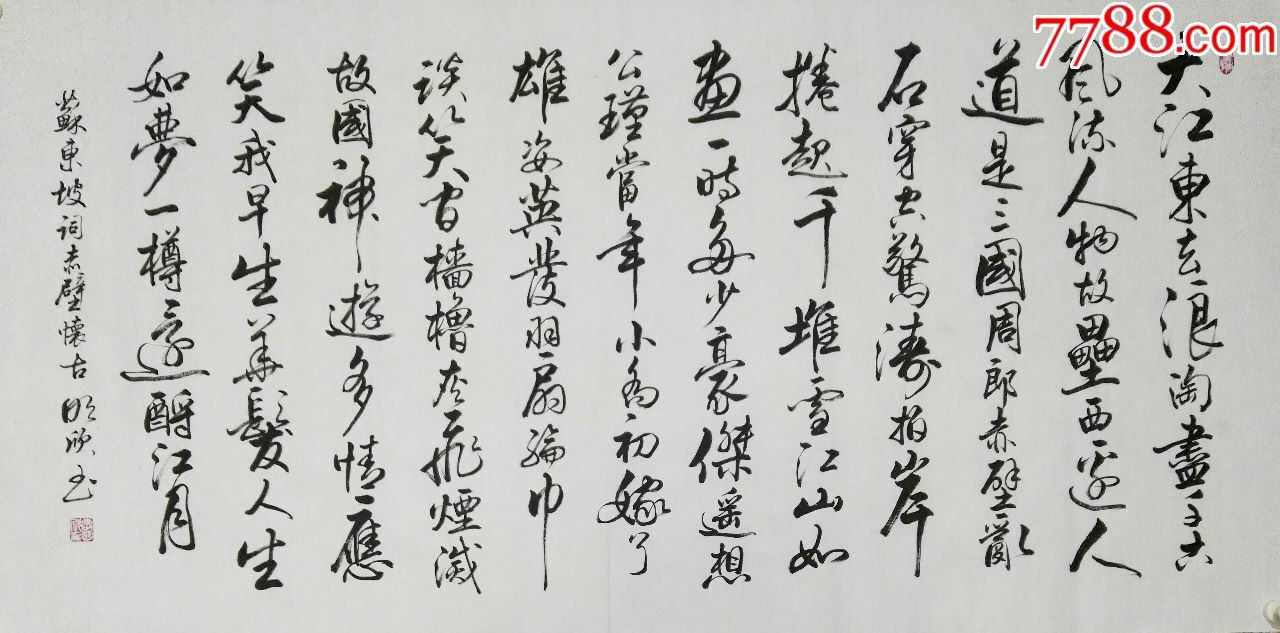 大江東去浪淘盡千古
風流人物故壘西邊人
道是三國周郎赤壁亂
石穿空驚濤拍岸
捲起千堆雪江山如
畫一時多少豪傑遥想
公瑾當年小喬初嫁了
雄姿英發羽扇綸巾
談笑間檣櫓灰飛煙滅
故國神遊多情應
笑我早生華髮人生
如夢一樽還酹江月
蘇東坡詞赤壁懷古
7788.com